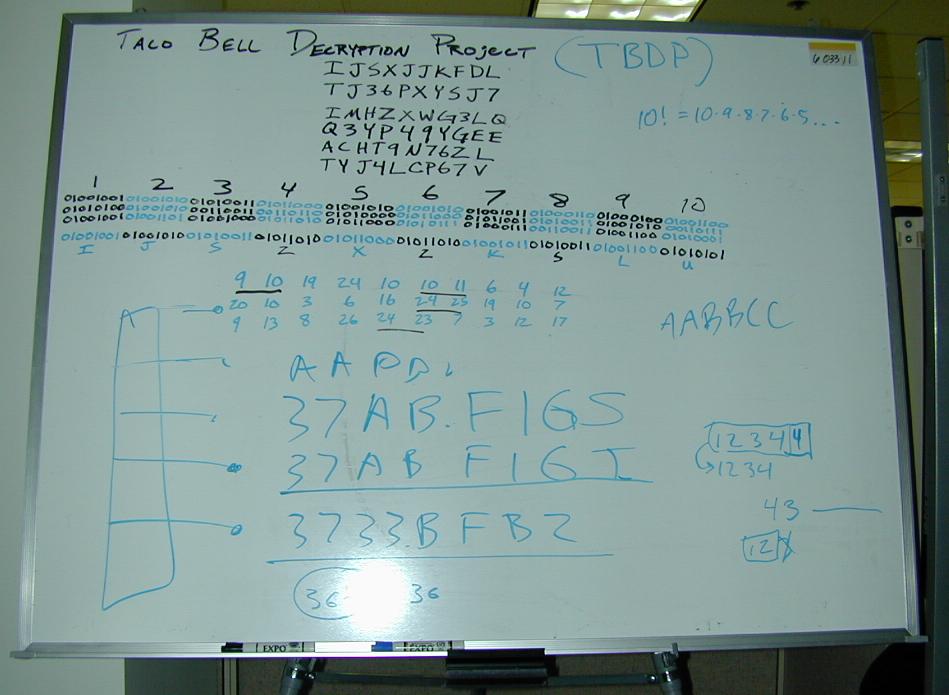 TACO BELL DECRYPTION PROJECT (TBDP)
603311
IJSXJJKFDL
TJ36PXYSJ7
IMHZXWG3LQ
Q3YP49YGEE
ACHT9N76ZL
TYJ4LCP67V
10! = 10·9·8·7·6·5...
1 2 3 4 5 6 7 8 9 10
01001001 01001010 01010011 01011010 01011000 01011010 01001011 01010011 01001100 01010101
I J S Z X Z K S L U
9 10 19 24 10 10 11 6 4 12
20 10 3 6 16 24 25 19 10 7
9 13 8 26 24 23 7 3 12 17
AABBCC
AAPD
37AB.FIGS
37AB FIGI
12344
1234
43
3733.BFB2
12
36 36
EXPO
EXPO